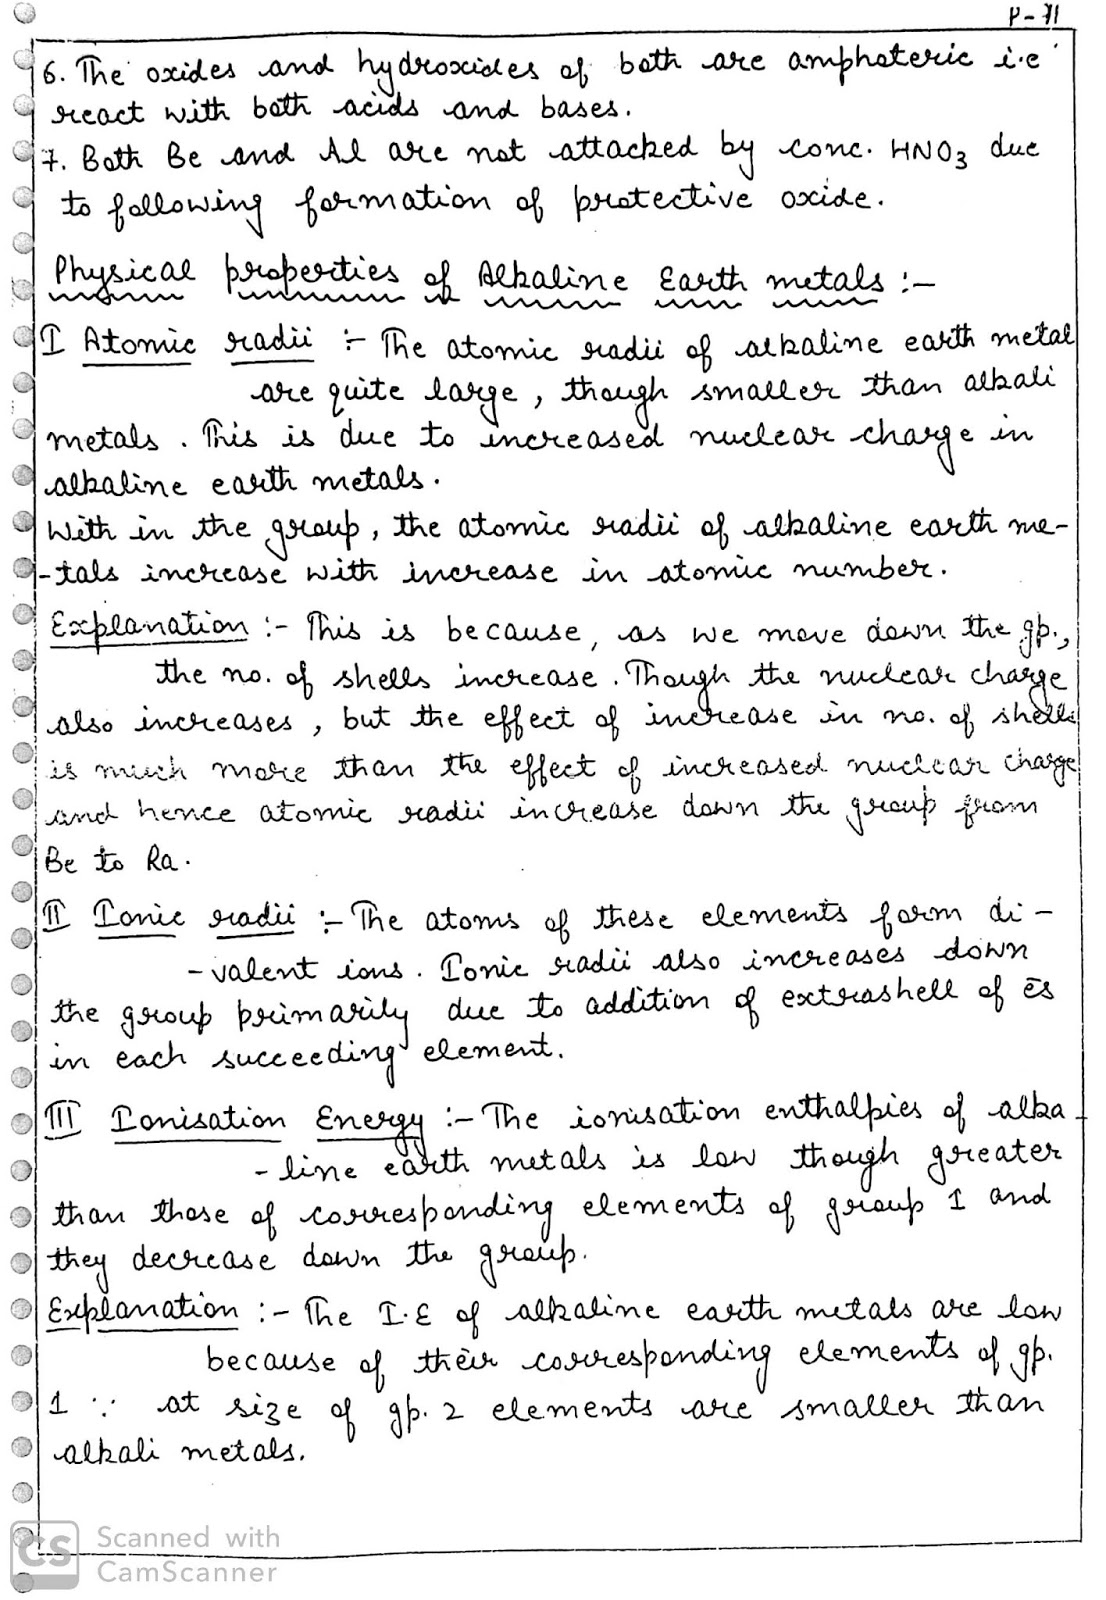 P-71
6. The oxides and hydroxides of both are amphoteric i.e
react with both acids and bases.
7. Both Be and Al are not attacked by conc. HNO3 due
to following formation of protective oxide.
Physical properties of Alkaline Earth metals :-
I Atomic radii :- The atomic radii of alkaline earth metal
are quite large, though smaller than alkali
metals. This is due to increased nuclear charge in
alkaline earth metals.
With in the group, the atomic radii of alkaline earth me-
-tals increase with increase in atomic number.
Explanation :- This is because, as we move down the gp.,
the no. of shells increase. Though the nuclear charge
also increases, but the effect of increase in no. of shells
is much more than the effect of increased nuclear charge
and hence atomic radii increase down the group from
Be to Ra.
II Ionic radii :- The atoms of these elements form di-
-valent ions. Ionic radii also increases down
the group primarily due to addition of extrashell of ēs
in each succeeding element.
III Ionisation Energy :- The ionisation enthalpies of alka-
-line earth metals is low though greater
than those of corresponding elements of group 1 and
they decrease down the group.
Explanation :- The I.E of alkaline earth metals are low
because of their corresponding elements of gp.
1 ∵ at size of gp. 2 elements are smaller than
alkali metals.
CS Scanned with
CamScanner